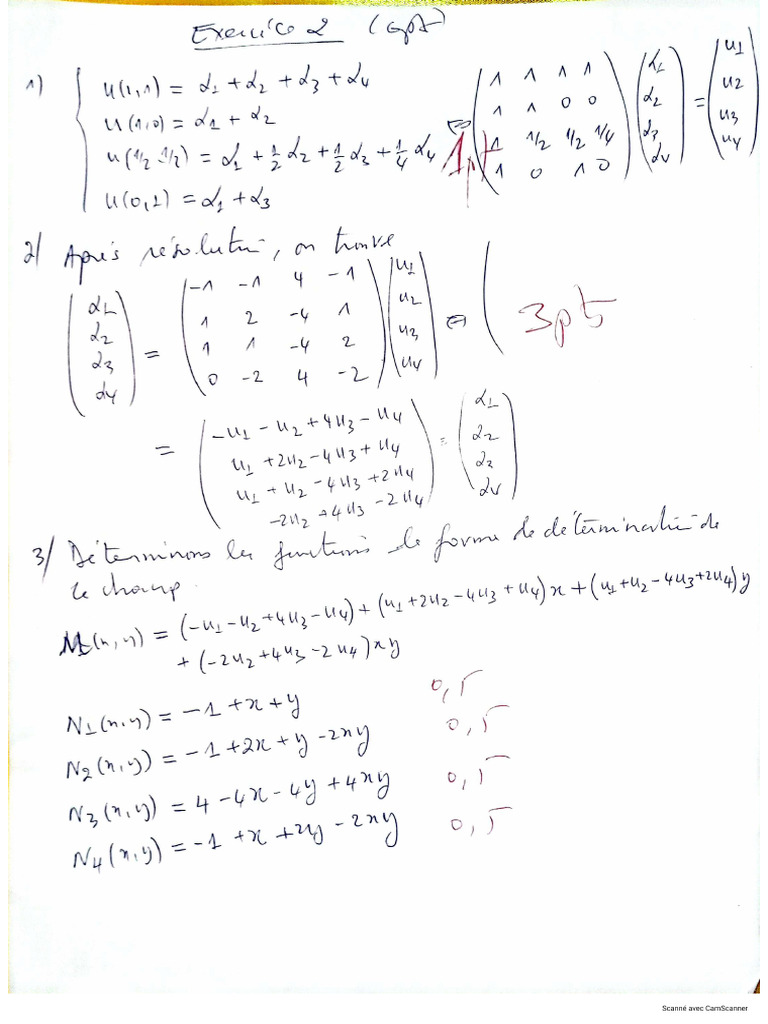 Exercice 2 (6pts)
1) { u(1,1) = α1 + α2 + α3 + α4
u(1,0) = α1 + α2
u(1/2,1/2) = α1 + 1/2 α2 + 1/2 α3 + 1/4 α4
u(0,1) = α1 + α3
⇔ ( 1 1 1 1 ) ( α1 ) = ( u1 )
( 1 1 0 0 ) ( α2 ) ( u2 )
( 1 1/2 1/2 1/4 ) ( α3 ) ( u3 )
( 1 0 1 0 ) ( α4 ) ( u4 )
1pt
2/ Après résolution, on trouve
( α1 ) = ( -1 -1 4 -1 ) ( u1 ) ⇔ (
( α2 ) ( 1 2 -4 1 ) ( u2 )
( α3 ) ( 1 1 -4 2 ) ( u3 )
( α4 ) ( 0 -2 4 -2 ) ( u4 )
3pts
= ( -u1 - u2 + 4u3 - u4 ) = ( α1 )
( u1 + 2u2 - 4u3 + u4 ) ( α2 )
( u1 + u2 - 4u3 + 2u4 ) ( α3 )
( -2u2 + 4u3 - 2u4 ) ( α4 )
3/ Déterminons les fonctions de forme de détermination de
le champ.
(x,y) = (-u1 - u2 + 4u3 - u4) + (u1 + 2u2 - 4u3 + u4)x + (u1 + u2 - 4u3 + 2u4)y
+ (-2u2 + 4u3 - 2u4)xy
N1(x,y) = -1 + x + y 0,5
N2(x,y) = -1 + 2x + y - 2xy 0,5
N3(x,y) = 4 - 4x - 4y + 4xy 0,5
N4(x,y) = -1 + x + 2y - 2xy 0,5
Scanné avec CamScanner